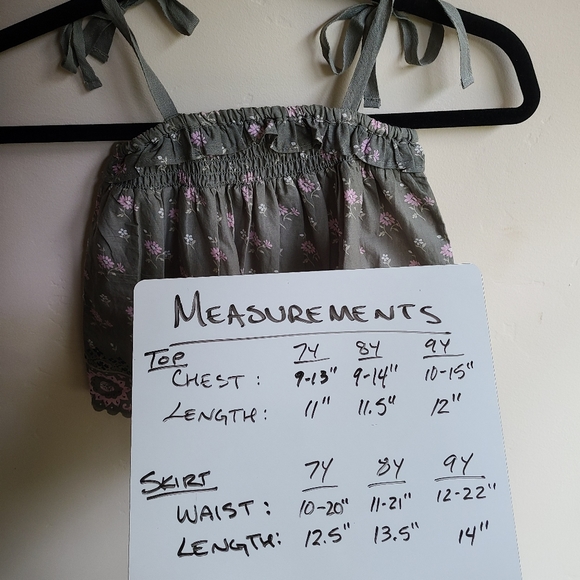 MEASUREMENTS
TOP 7Y 8Y 9Y
CHEST: 9-13" 9-14" 10-15"
LENGTH: 11" 11.5" 12"
SKIRT 7Y 8Y 9Y
WAIST: 10-20" 11-21" 12-22"
LENGTH: 12.5" 13.5" 14"